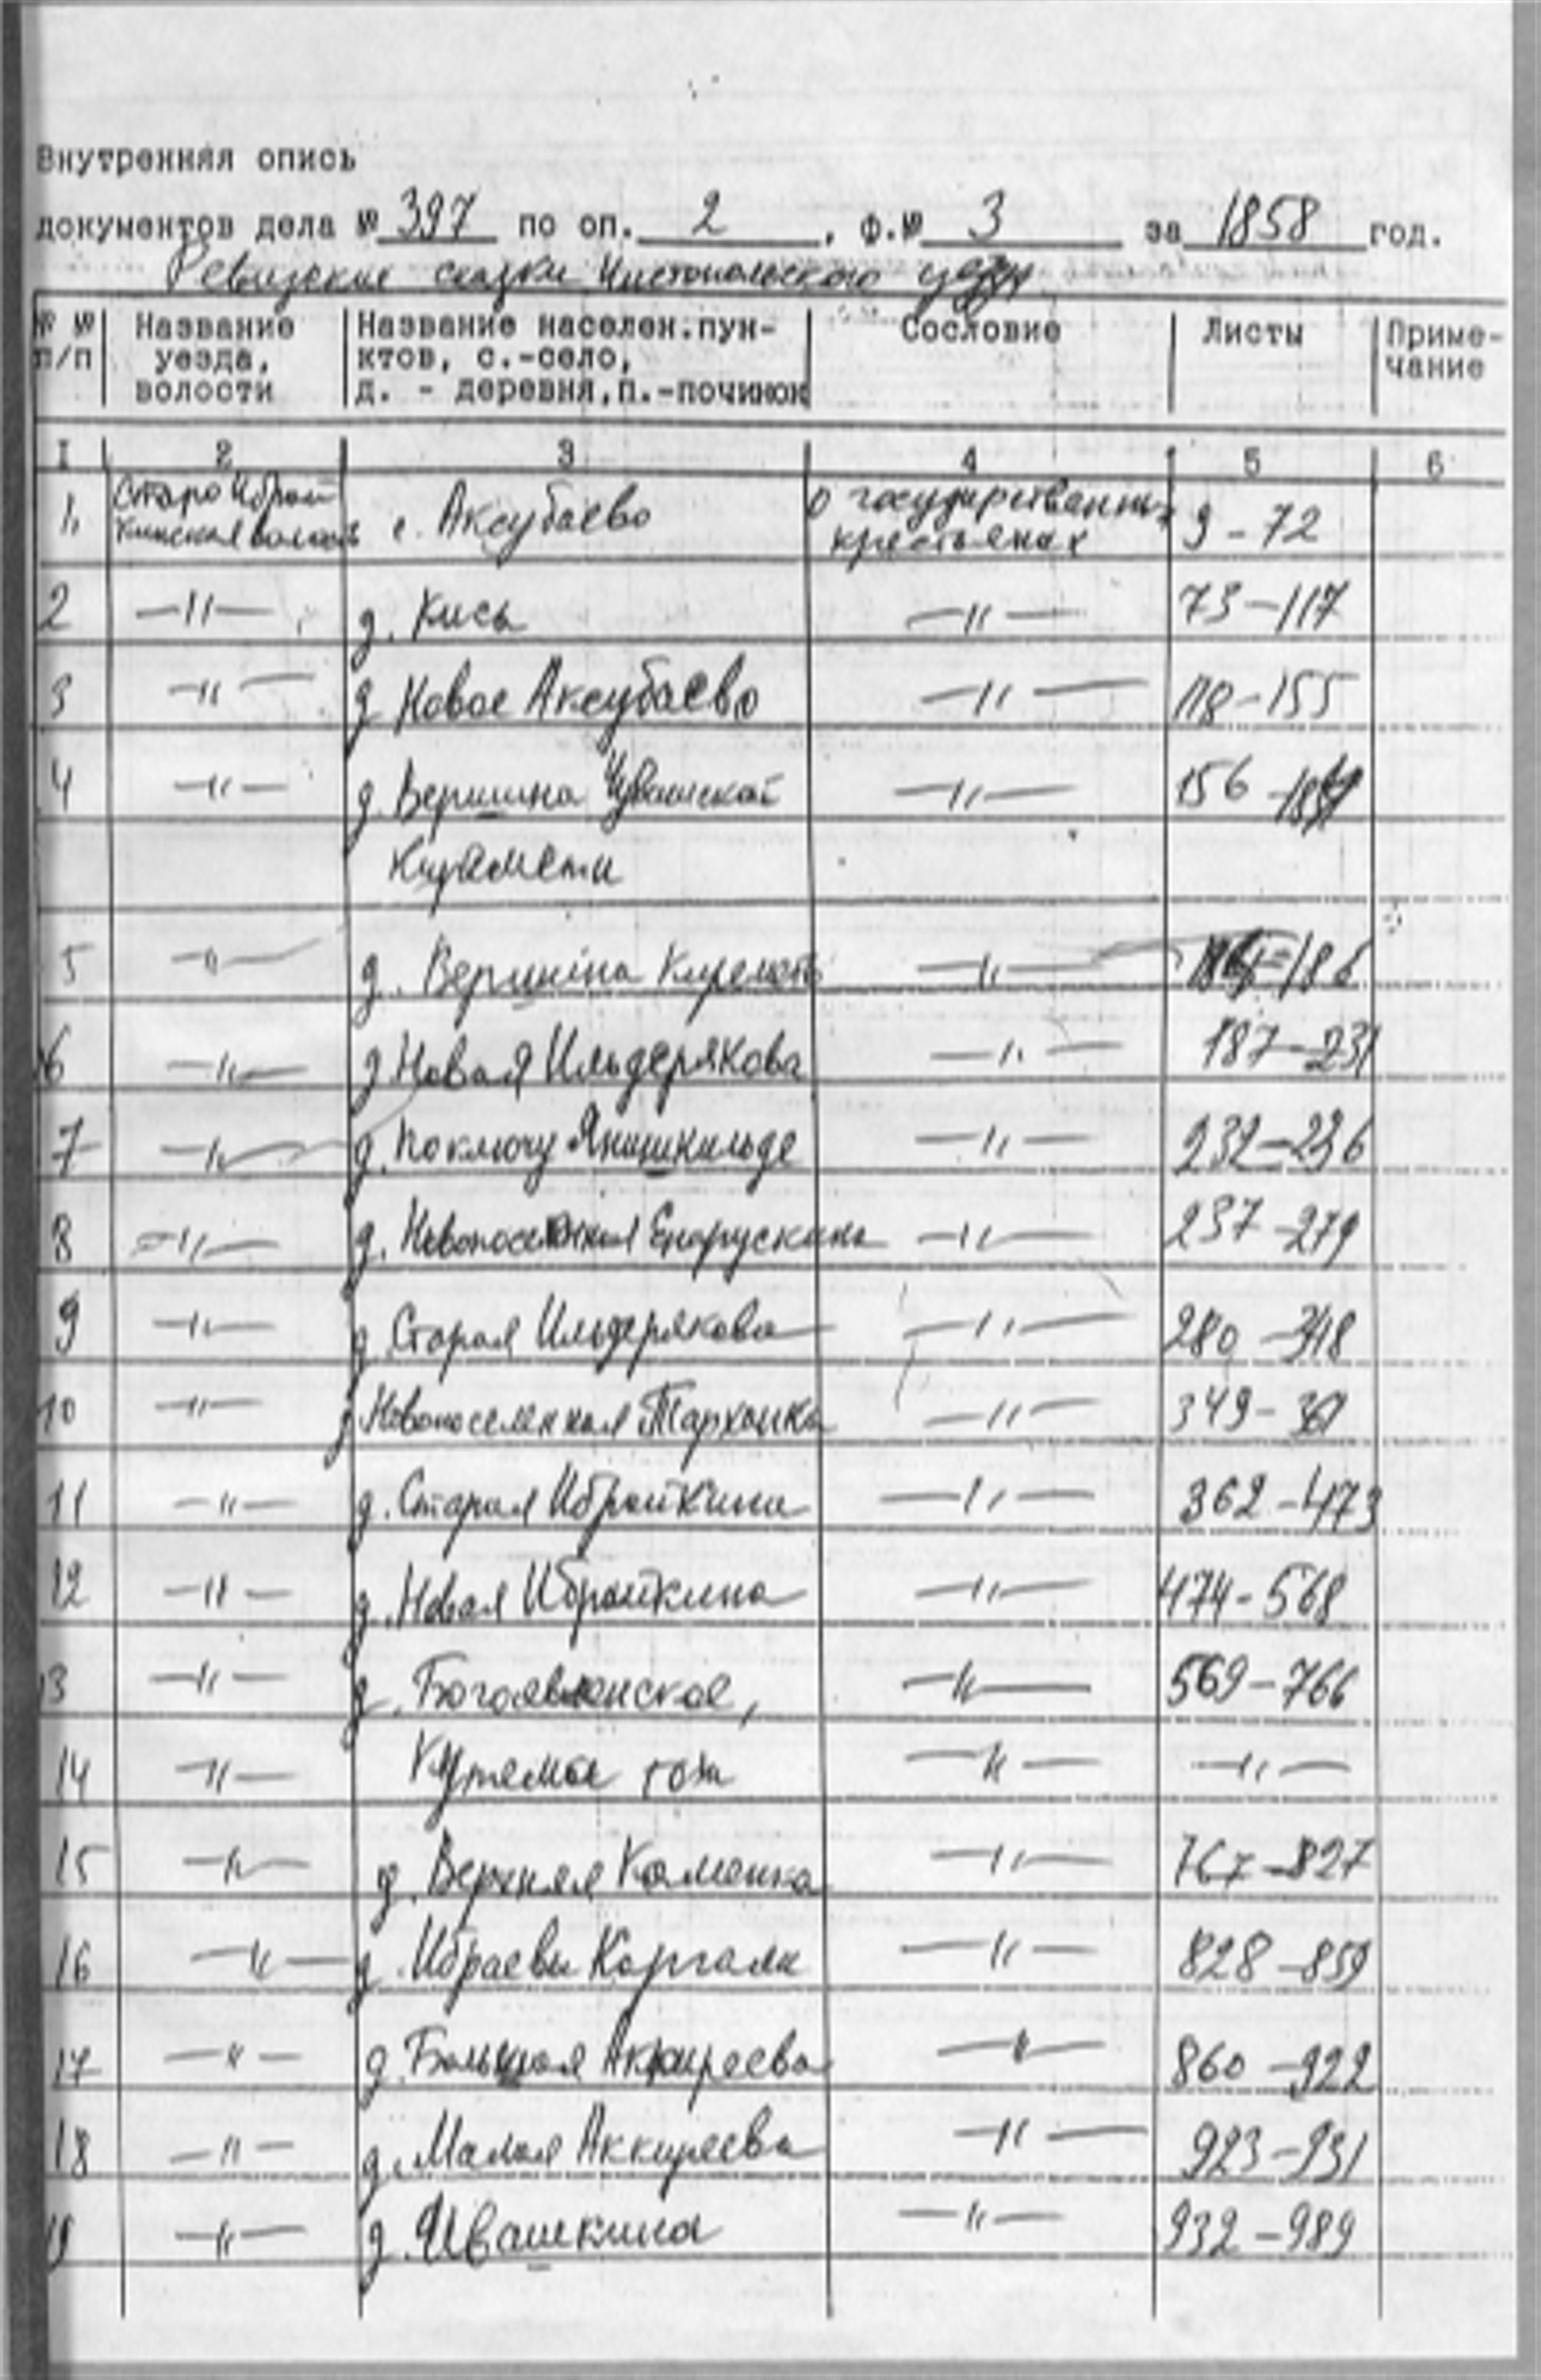 Внутренняя опись
документов дела № 397 по оп. 2, ф.№ 3 за 1858 год.
Ревизские сказки Чистопольского уезда
№ № п/п | Название уезда, волости | Название населен.пун- | Сословие | Листы | Приме-
ктов, с.-село, | чание
д. - деревня,п.-починок
I 2 3 4 5 6
1. Старо Ибрай- с. Аксубаево о государственных 9-72
кинская волость крестьянах
2 —"— д. Кись —"— 73-117
3 —"— д Новое Аксубаево —"— 118-155
4 —"— д. Вершина Чувашской —"— 156
5 —"— д. Вершина Киремети —"— 186
6 —"— д. Новая Ильдерякова —"— 187-231
7 —"— д. по ключу Янишкильде —"— 232-236
8 —"— д. Новопоселенная Енорускина —"— 237-279
9 —"— д. Старая Ильдерякова —"— 280-348
10 —"— д Новопоселенная Тарханка —"— 349-361
11 —"— д. Старая Ибрайкина —"— 362-473
12 —"— д. Новая Ибрайкина —"— 474-568
13 —"— д. Богоявленское, —"— 569-766
14 —"— тож —"— —"—
15 —"— д. Верхняя Каменка —"— 767-827
16 —"— д. Ибраевы Каргали —"— 828-859
17 —"— д. Большая Аккиреева —"— 860-922
18 —"— д. Малая Аккиреева —"— 923-931
19 —"— д. Ивашкина —"— 932-989